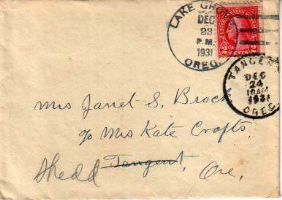 LAKE GR
DEC
23
P.M.
1931
OREG.
TANGENT
DEC
24
10AM
1931
OREG
Mrs Janet S. Brock
c/o Mrs Kate Crafts,
Shedd Tangent, Ore.